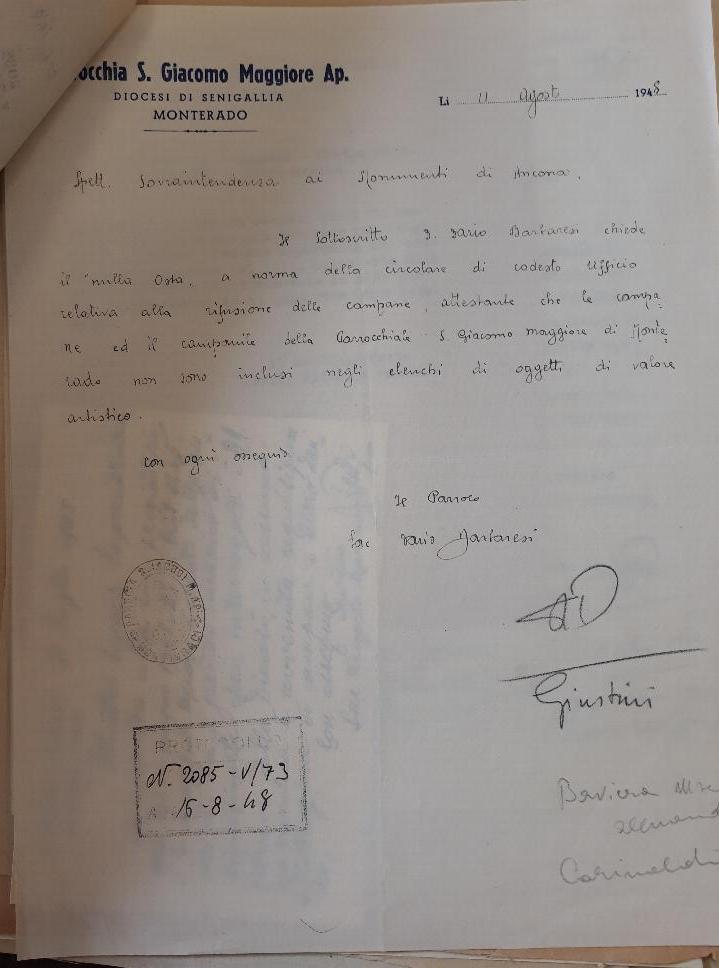 occhia S. Giacomo Maggiore Ap.
DIOCESI DI SENIGALLIA
MONTERADO
Li 11 Agosto 1948
Spett. Sovraintendenza ai Monumenti di Ancona.
Il sottoscritto D. Dario Bartaresi chiede
il "nulla Osta, a norma della circolare di codesto Ufficio
relativa alla rifusione delle campane, attestante che le campa=
ne ed il campanile della Parrocchiale S. Giacomo maggiore di Monte=
rado non sono inclusi negli elenchi di oggetti di valore
artistico.
con ogni ossequio
Il Parroco
Sac Dario Bartaresi
Giustini
PROTOCOLLO
N. 2085-V/73
16-8-48
Baviera